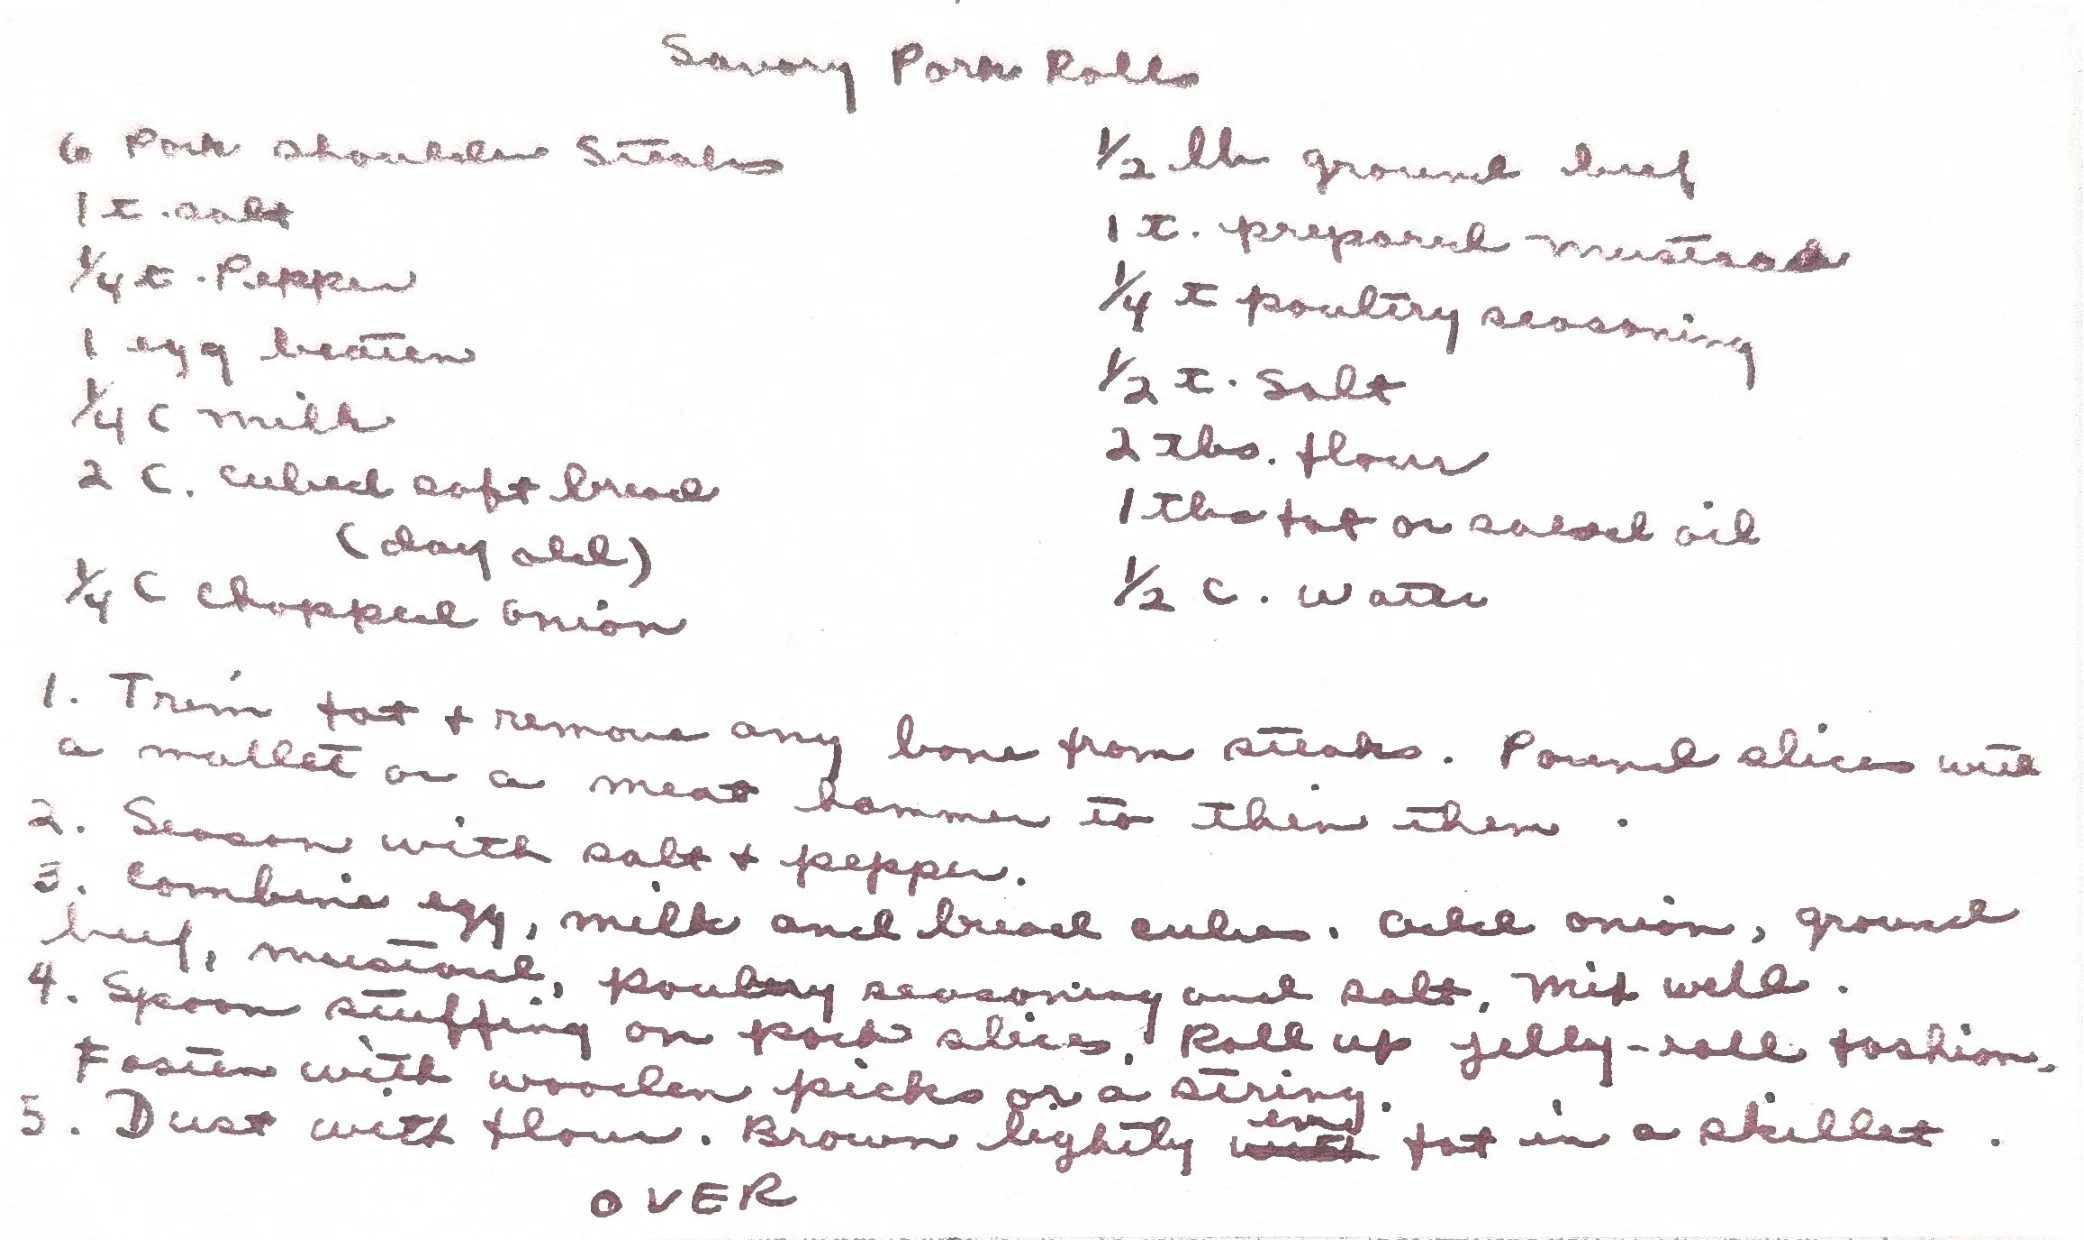 Savory Pork Rolls
6 Pork shoulder Steaks
1 t. salt
1/4 t. Pepper
1 egg beaten
1/4 C milk
2 C. cubed soft bread
(day old)
1/4 C chopped onion
1/2 lb ground beef
1 t. prepared mustard
1/4 t poultry seasoning
1/2 t. Salt
2 tbs. flour
1 tbs fat or salad oil
1/2 C. water
1. Trim fat + remove any bone from steaks. Pound slices with
a mallet or a meat hammer to thin them.
2. Season with salt + pepper.
3. Combine egg, milk and bread cubes. Add onion, ground
beef, mustard, poultry seasoning and salt. Mix well.
4. Spoon stuffing on pork slices. Roll up jelly-roll fashion.
Fasten with wooden picks or a string.
5. Dust with flour. Brown lightly in fat in a skillet.
OVER